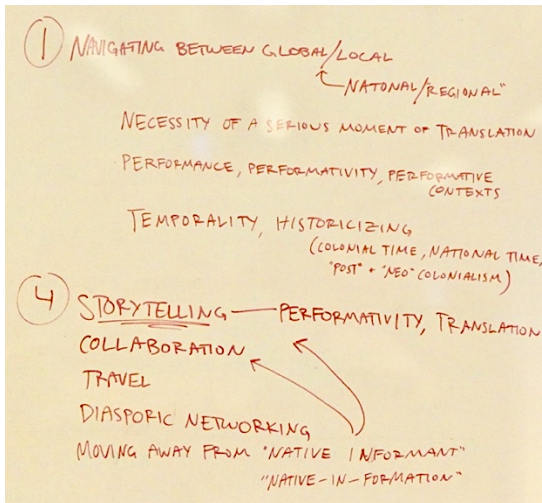 1 NAVIGATING BETWEEN GLOBAL/LOCAL
NATONAL/REGIONAL"
NECESSITY OF A SERIOUS MOMENT OF TRANSLATION
PERFORMANCE, PERFORMATIVITY, PERFORMATIVE
CONTEXTS
TEMPORALITY, HISTORICIZING
(COLONIAL TIME, NATIONAL TIME,
"POST" + "NEO" COLONIALISM)
4 STORYTELLING — PERFORMATIVITY, TRANSLATION
COLLABORATION
TRAVEL
DIASPORIC NETWORKING
MOVING AWAY FROM "NATIVE INFORMANT"
"NATIVE-IN-FORMATION"